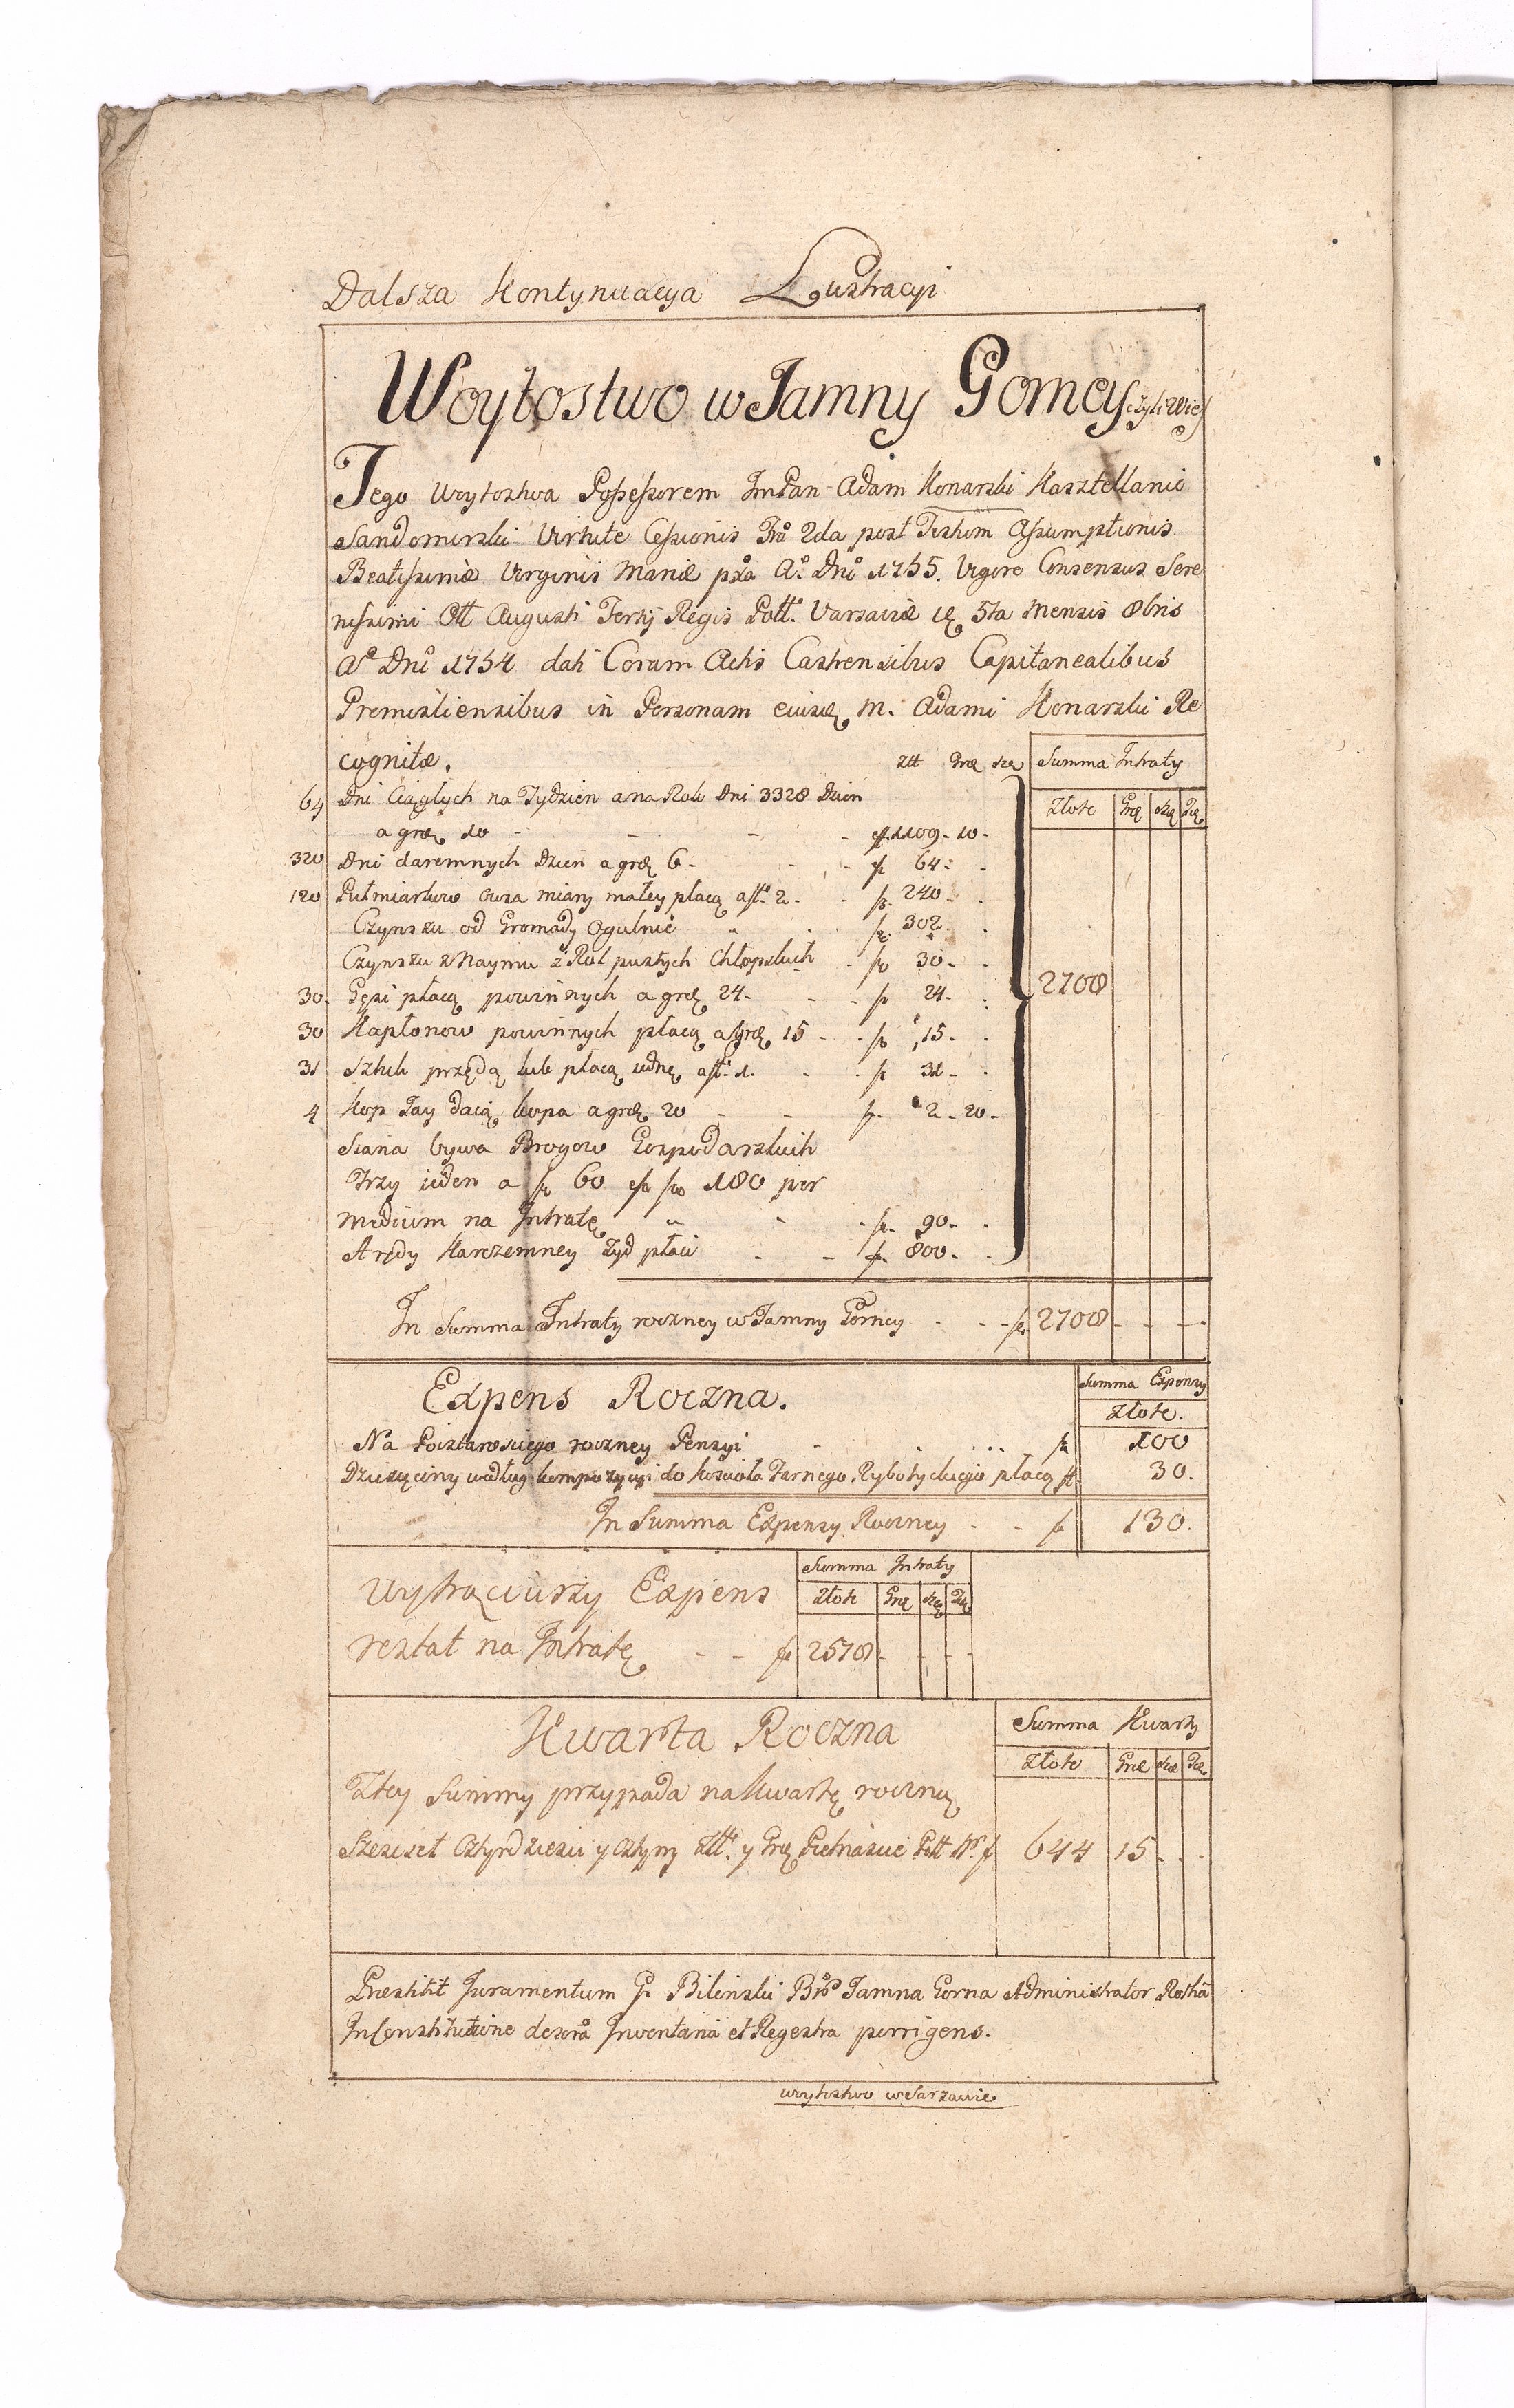 Dalsza Kontynuacya Lustracyi
Woytostwo w Jamny Gorney czyli wieś
Tego Woytostwa Possessorem ImPan Adam Konarski Kasztellanic
Sandomirski Virtute Cessionis Fra 2da post Festum Assumptionis
Beatissimæ Virginis Mariæ pxa Ao. Dni 1755. Vigore Consensus Sere
nissimi Olt Augusti Tertij Regis Poltt. Varsaviæ 5ta Mensis 8bris
Ao Dni 1754 dati Coram Actis Castrensibus Capitanealibus
Premisliensibus in Personam eiusd M. Adami Konarski Re
cognitæ. Złt Grꝫ Szꝫ Summa Intraty
64 Dni Ciągłych na Tydzien a na Rok Dni 3328 Dzien Złote Grꝫ Szꝫ
a grꝫ 10 - - - - 1109 - 10 -
320 Dni daremnych Dzien a grꝫ 6 - - - 64 -
120 Pułmiarkow Owsa miary małey płacą a ft 2 - - 240 -
Czynszu od Gromady Ogulnie 302
Czynszu z Naymu z Rol pustych Chłopskich - 30 -
30. Gęsi płacą powinnych a grꝫ 24 - - 24 - 2708
30 Kapłonow powinnych płacą a grꝫ 15 - - 15 -
31 Sztuk przędą lub płacą iednę a ft 1. - - 31 -
4 Kop Jay daią kopa a grꝫ 20 - - 2 - 20 -
Siana bywa Brogow Gospodarskich
Trzy ieden a 60 180 per
Medium na Intratę - 90 -
Arędy Karczemney Zyd płaci - - 800 -
In Summa Intraty roczney w Jamny Gorney - - - 2708 - - -
Expens Roczna. Summa Expensy
Złote.
Na Podstarosciego roczney Pensyi 100
Dziesięciny według kompozycyi do Koscioła Farnego Rybotyckiego płacą 30.
In Summa Expensy Roczney - - 130.
Wytrąciwszy Expens Summa Intraty
Złote Grꝫ Szꝫ
restat na Intratę - - 2578 - - -
Kwarta Roczna Summa Kwarty
Złote Grꝫ Szꝫ
Z tey Summy przypada na Kwartę roczną
Szescset Cztyrdziesci y Cztyry Złt. y Grꝫ Pietnascie 644 15 - - -
Præstitit Juramentum G. Bilinski Jamna Gorna Administrator
In Constitutione Inventaria et Regestra porrigens.
Woytostwo w Sarzawie